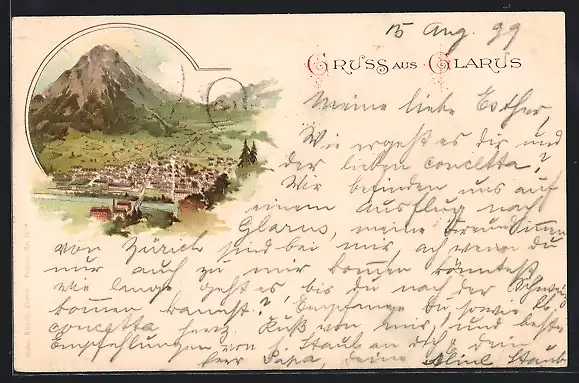 15 Aug. 99
GRUSS AUS GLARUS
Meine liebe Esther,
Wie ergeht es dir und
der lieben Concetta?
Wir befinden uns auf
einem Ausflug nach
Glarus, meine Freundinnen
von Zürich sind bei mir, ach wenn du
nur auch zu mir kommen könntest,
wie lange geht es bis du nach der Schweiz
kommen kannst? Empfange du sowie
Concetta herz. Kuß von mir, und beste
Empfehlungen von Staub an dich & dein
Papa, deine Staub